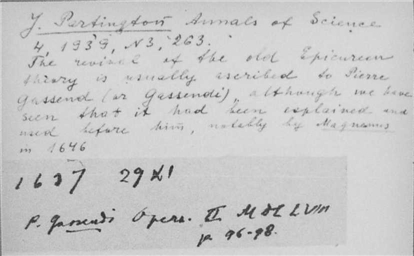 J. Partington Annals of Science
4, 1939, N3, 263.
The revival of the old Epicurean
theory is usually ascribed to Pierre
Gassend (or Gassendi), although we have
seen that it had been explained and
used before him, notably by Magnenus
in 1646
1637 29 XI
P. Gassendi Opera. II MDCLVIII
p. 96-98.